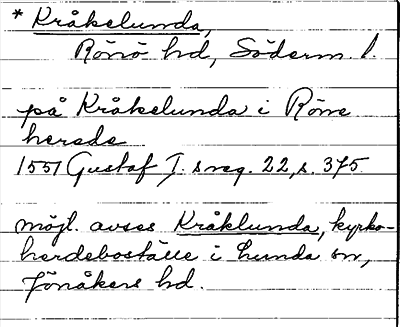 * Kråkelunda,
Rönö hd, Söderm. l.
på Kråkelunda i Röne
herade
1551 Gustaf I:s reg. 22, s. 375
möjl. avses Kråklunda, kyrko-
herdeboställe i Lunda sn,
Jönåkers hd.